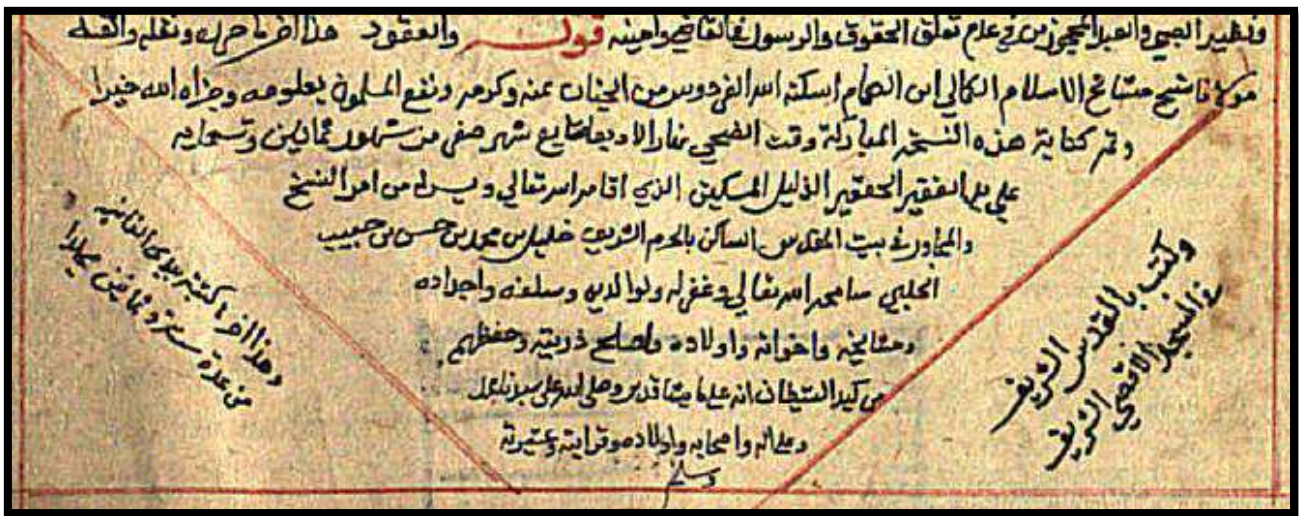 ونظير الصبي والعبد المحجورين في عدم تعلق الحقوق والرسول فالقاضي وأمينه قوله والعقود هذا اخر ما حرره ونقله والفه
مولانا شيخ مشائخ الاسلام الكمالي ابن الهمام اسكنه الله الفردوس من الجنان بمنه وكرمه ونفع المسلمين بعلومه وجزاه الله خيرا
وتم كتابة هذه النسخة المباركة وقت الضحى نهار الاربعا شهر صفر من شهور ثمانين وتسعمايه
على يد الفقير الحقير الذليل المسكين الذي اقامه الله تعالى من امر النسخ
والمجاور في بيت المقدس الساكن بالحرم الشريف خليل بن محمد بن حسن بن حبيب
الحلبي سامحه الله تعالى وغفر له ولوالديه وسلفه واجداده
ومشايخه واخوانه واولاده واصلح ذريته وحفظهم
من كيد الشيطان انه على ما يشا قدير وصلى الله على سيدنا محمد
وعلى اله واصحابه واولاده وقرابته وعتيرته
وسلم
وكتب بالقدس الشريف
في المسجد الاقصى الشريف
وهذا اخر ما كتبته بيدي الفانيه
من عدة ستة وثمانين مجلدا